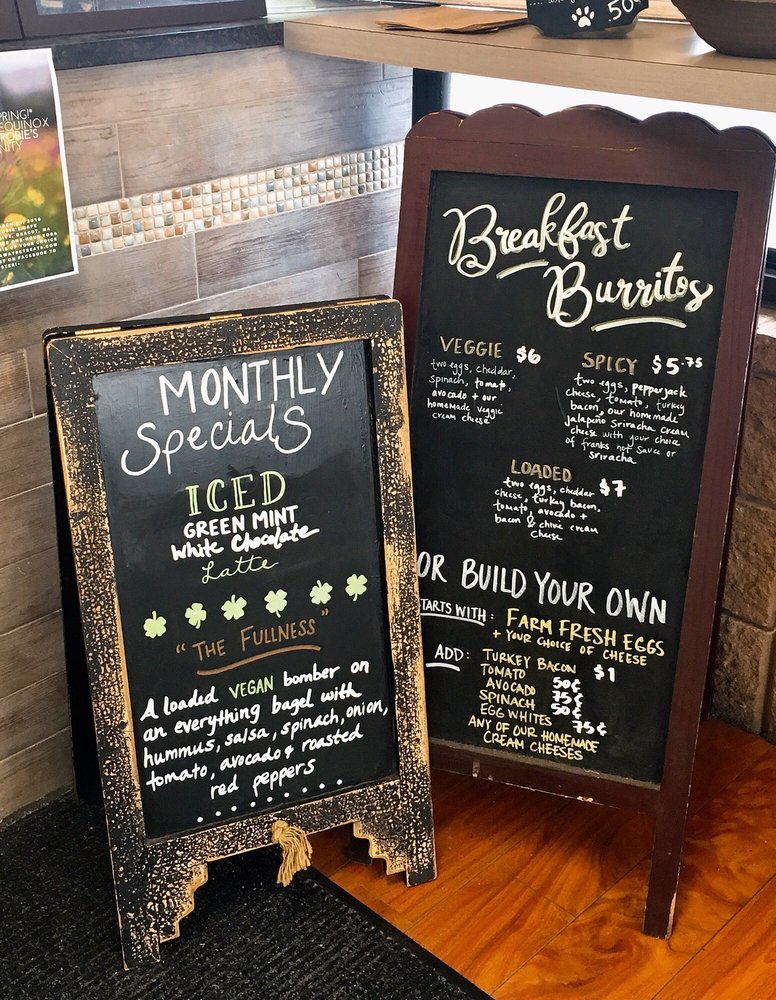 .50¢
PRING!*
EQUINOX
ROBIE'S
NITY
MONTHLY
Specials
ICED
GREEN MINT
White Chocolate
Latte
"THE FULLNESS"
A loaded VEGAN bomber on
an everything bagel with
hummus, salsa, spinach, onion,
tomato, avocado & roasted
red peppers
Breakfast
Burritos
VEGGIE $6
two eggs, cheddar,
spinach, tomato,
avocado + our
homemade veggie
cream cheese
SPICY $5.75
two eggs, pepperjack
cheese, tomato, turkey
bacon, our homemade
jalapeño sriracha cream
cheese with your choice
of franks hot sauce or
sriracha
LOADED $7
two eggs, cheddar
cheese, turkey bacon,
tomato, avocado +
bacon & chive cream
cheese
OR BUILD YOUR OWN
STARTS WITH: FARM FRESH EGGS
+ YOUR CHOICE OF CHEESE
ADD: TURKEY BACON $1
TOMATO 50¢
AVOCADO 75¢
SPINACH 50¢
EGG WHITES 75¢
ANY OF OUR HOMEMADE
CREAM CHEESES